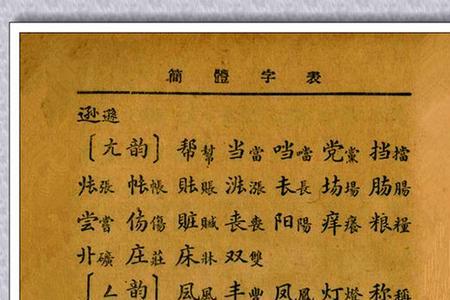 簡體字表
逊遜
〔ㄤ韵〕帮幫 当當 噹 党黨 挡擋
张張 帐帳 账賬 涨漲 长長 场場 肠腸
尝嘗 伤傷 赃贓 丧喪 阳陽 痒癢 粮糧
礦 庄莊 床牀 双雙
〔ㄥ韵〕凨風 丰豐 凤鳳 灯燈 称稱